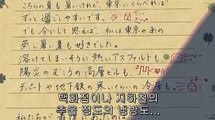 こちらの夏も暑いけれど、東京にくらべれば
ずっと過ごしやすいです。
でも今にして思えば、私は東京のあの
蒸し暑い夏も好きでした。
溶けてしまいそうに熱いアスファルトも、
陽炎のむこうの高層ビルも、
デパートや地下鉄の寒いくらいの冷房も
백화점이나 지하철의
추울 정도의 냉방도...